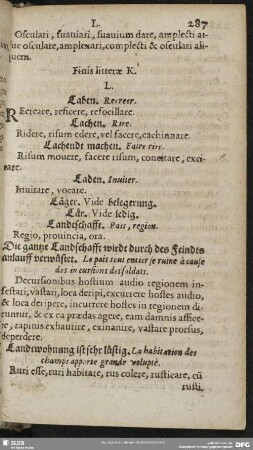 L. 287
Osculari, suauiari, suauium dare, amplecti at-
que osculare, amplexari, complecti & osculari ali-
quem.
Finis litteræ K.
L.
Laben. Recreer.
REcreare, reficere, refocillare.
Lachen. Rire.
Ridere, risum edere, vel facere, cachinnare.
Lachendt machen. Faire rire.
Risum mouere, facere risum, concitare, exci-
tare.
Laden. Inuiter.
Inuitare, vocare.
Läger. Vide belegerung.
Lär. Vide ledig.
Landtschafft. Pais, region.
Regio, prouincia, ora.
Die gantze Landschafft wirdt durch des Feindes
anlauff verwüstet. Le pais tout entier se ruine à cause
des incursions des soldats.
Decursionibus hostium audio regionem in-
festari, vastari, loca deripi, excurrere hostes audio,
& loca deripere, incurrere hostes in regionem di-
cuntur, & ex ea prædas agere, eam damnis affice-
re, rapinis exhaurire, exinanire, vastare prorsus,
deperdere.
Landtwohnung ist sehr lüstig. La habitation des
champs apporte grande volupté.
Ruri esse, ruri habitare, rus colere, rusticare, cū
rusti-
SLUB
DFG